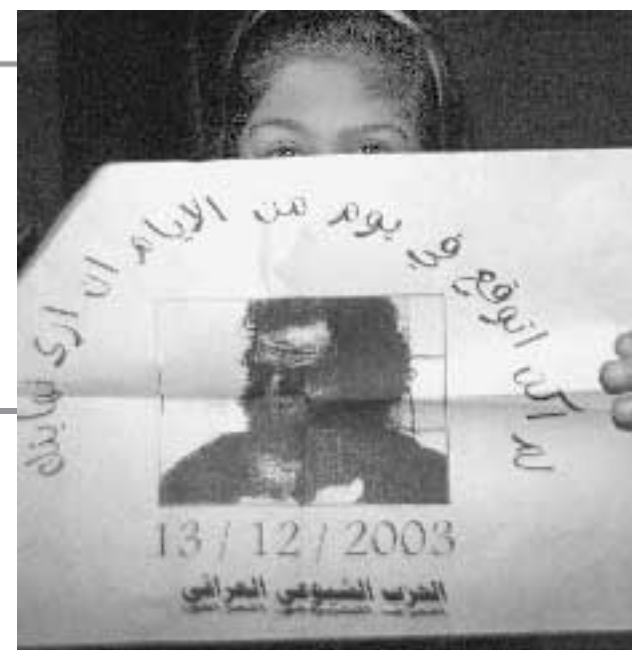 لم اكن اتوقع في يوم من الايام ان ارى نهايتك
13 / 12 / 2003
الحزب الشيوعي العراقي